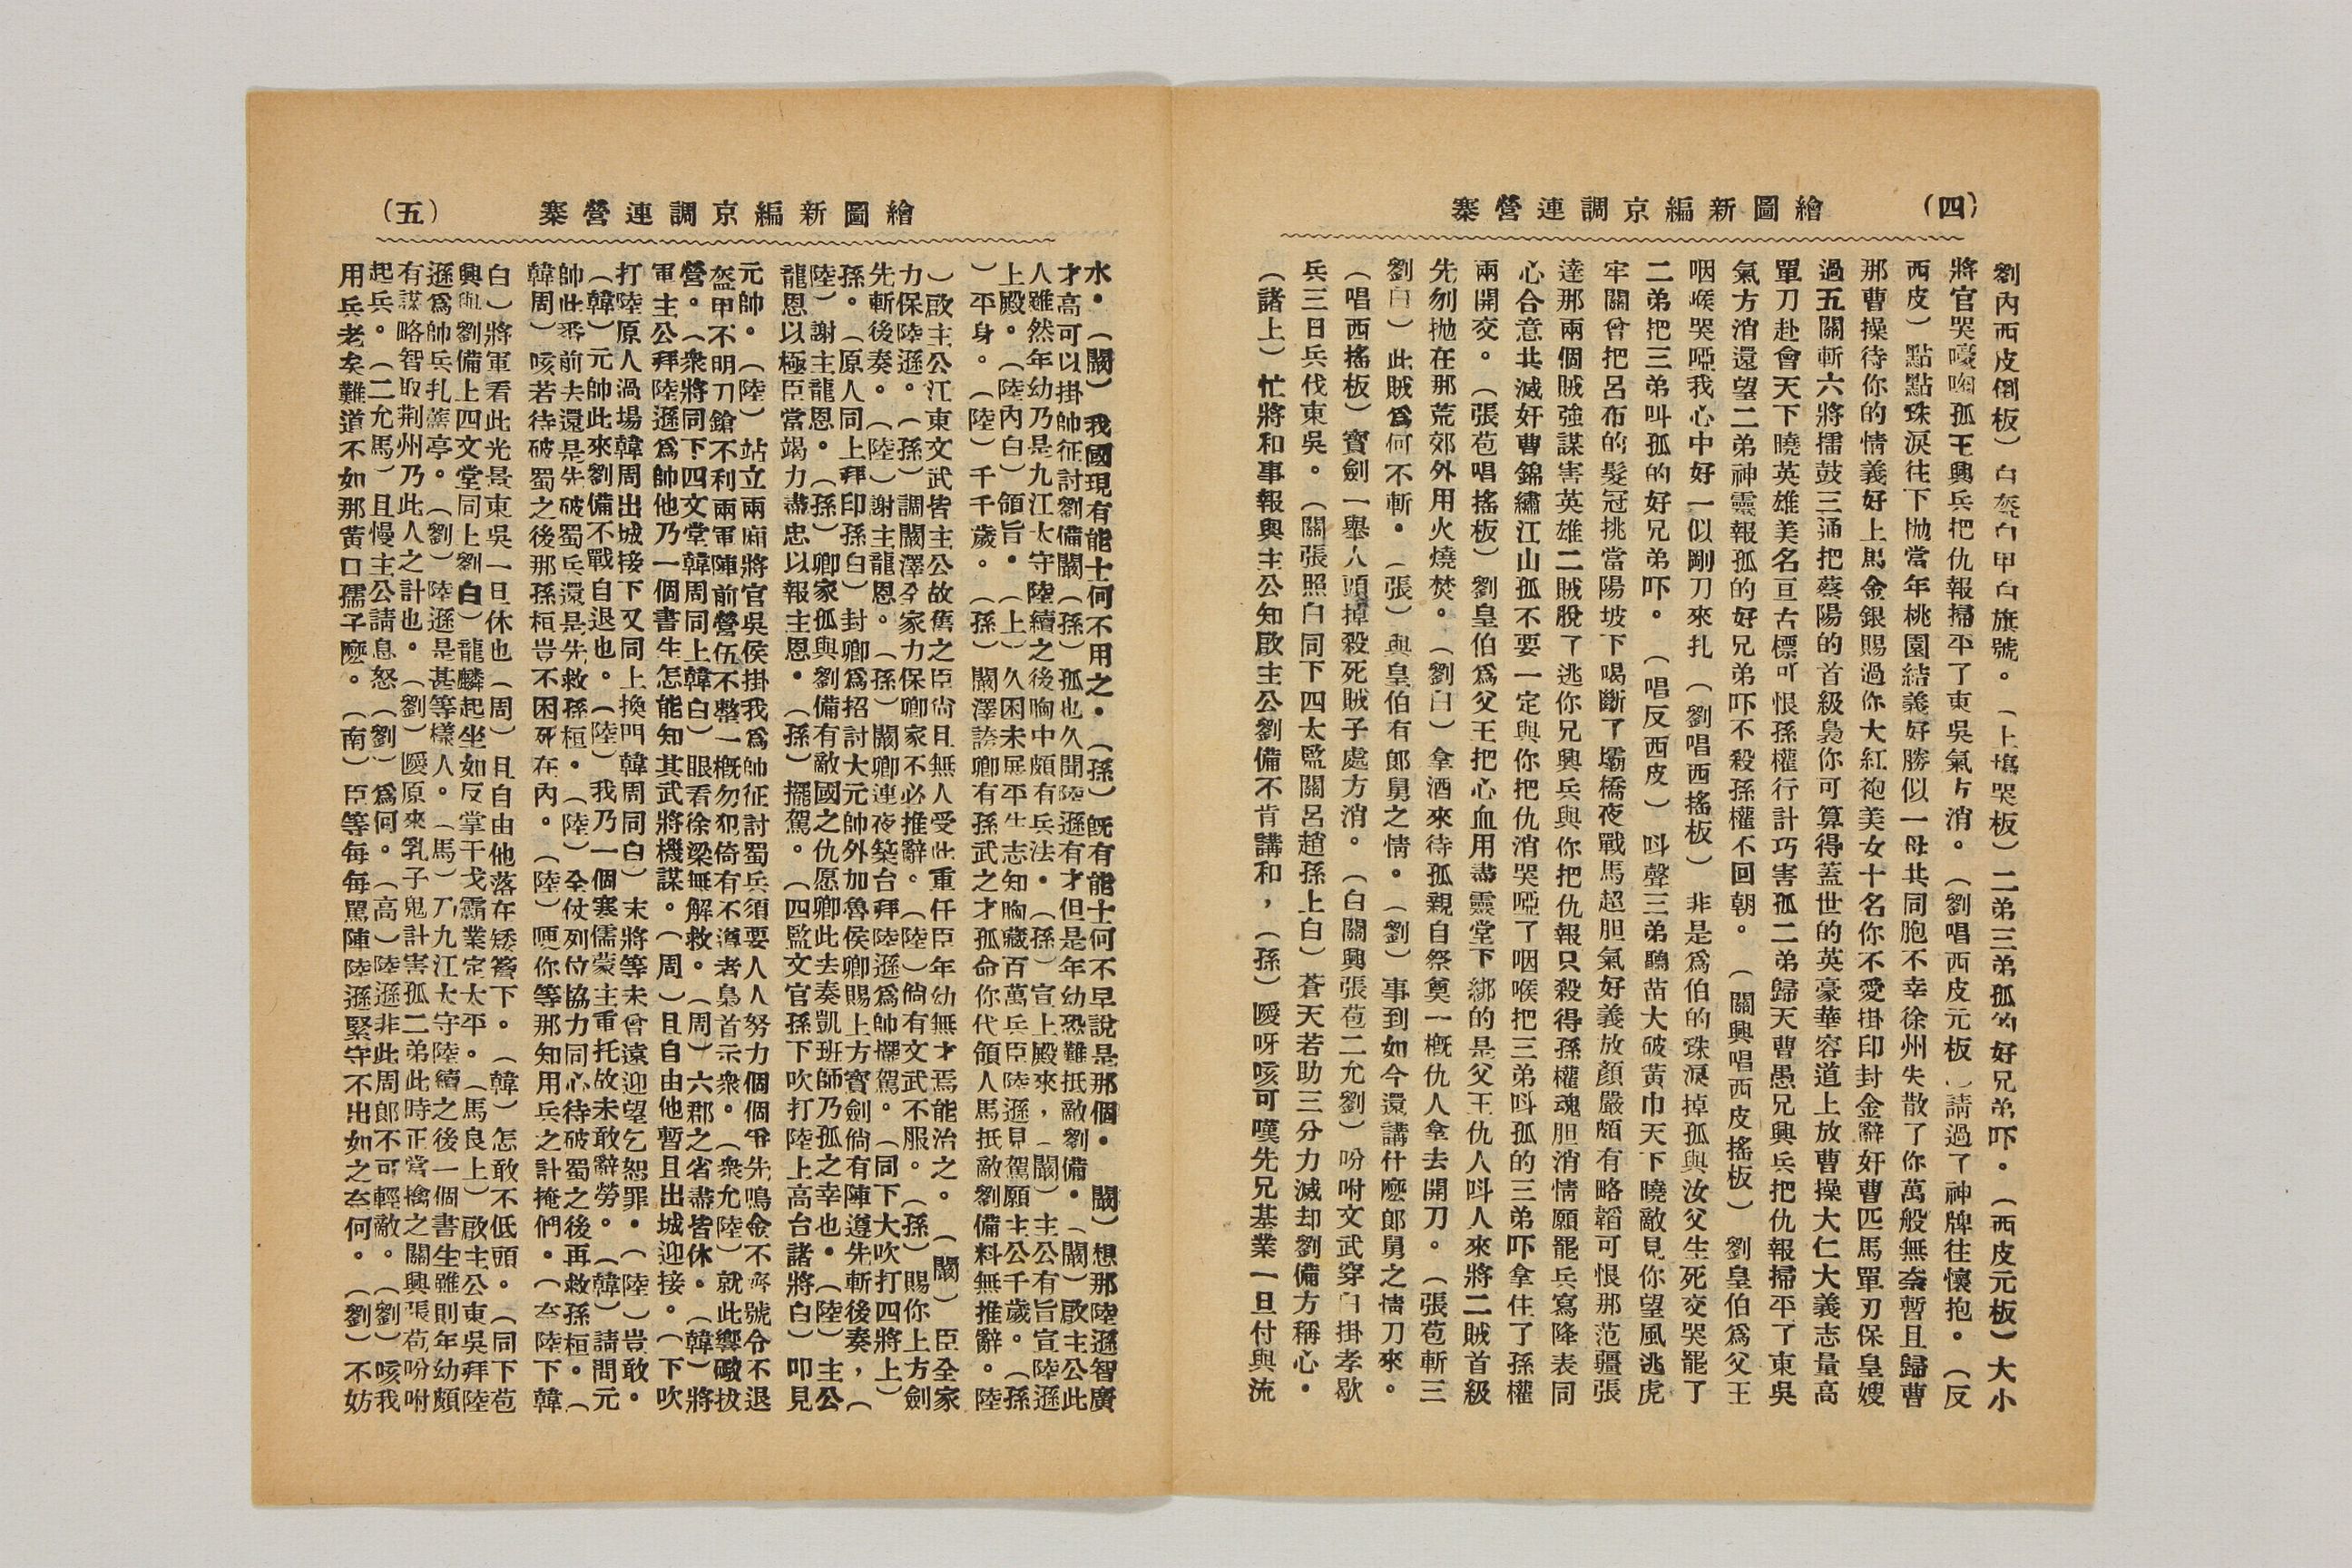 (四)
繪圖新編京調連營寨
劉內西皮倒板）白盔白甲白旗號。（上場哭板）二弟三弟孤的好兄弟吓。（西皮元板）大小
將官哭嚎啕孤王興兵把仇報掃平了東吳氣方消。（劉唱西皮元板）請過了神牌往懷抱。（反
西皮）點點珠淚往下抛當年桃園結義好勝似一母共同胞不幸徐州失散了你萬般無奈暫且歸曹
那曹操待你的情義好上馬金銀賜過你大紅袍美女十名你不愛掛印封金辭奸曹匹馬單刃保皇嫂
過五關斬六將擂鼓三通把蔡陽的首級裊你可算得蓋世的英豪華容道上放曹操大仁大義志量高
單刀赴會天下曉英雄美名亘古標可恨孫權行計巧害孤二弟歸天曹愚兄興兵把仇報掃平了東吳
氣方消還望二弟神靈報孤的好兄弟吓不殺孫權不回朝。（關興唱西皮搖板）劉皇伯爲父王
咽喉哭啞我心中好一似剛刀來扎（劉唱西搖板）非是爲伯的珠淚掉孤與汝父生死交哭罷了
二弟把三弟叫孤的好兄弟吓。（唱反西皮）叫聲三弟鵰苗大破黃巾天下曉敵見你望風逃虎
牢關曾把呂布的髮冠挑當陽坡下喝斷了壩橋夜戰馬超胆氣好義放顏嚴頗有略韜可恨那范疆張
達那兩個賊強謀害英雄二賊脫了逃你兄興兵與你把仇報只殺得孫權魂胆消情願罷兵寫降表同
心合意共滅奸曹錦繡江山孤不要一定與你把仇消哭啞了咽喉把三弟叫孤的三弟吓拿住了孫權
兩開交。（張苞唱搖板）劉皇伯爲父王把心血用盡靈堂下綁的是父王仇人叫人來將二賊首級
先刎抛在那荒郊外用火燒焚。（劉白）拿酒來待孤親自祭奠一槪仇人拿去開刀。（張苞斬三
劉白）此賊爲何不斬。（張）與皇伯有郎舅之情。（劉）事到如今還講什麼郎舅之情刀來。
（唱西搖板）寳劍一舉人頭掉殺死賊子處方消。（白關興張苞二允劉）吩咐文武穿白掛孝歇
兵三日兵伐東吳。（關張照白同下四太監關呂趙孫上白）蒼天若助三分力滅却劉備方稱心。
（諸上）忙將和事報與主公知啟主公劉備不肯講和，（孫）嗳呀咳可嘆先兄基業一旦付與流
(五)
繪圖新編京調連營寨
水。（闞）我國現有能士何不用之。（孫）旣有能士何不早說是那個。闞）想那陸遜智廣
才高可以掛帥征討劉備闞（孫）孤也久聞陸遜有才但是年幼恐難抵敵劉備。（闞）啟主公此
人雖然年幼乃是九江太守陸續之後胸中頗有兵法。（孫）宣上殿來，（闞）主公有旨宣陸遜
上殿。（陸內白）領旨。（上）久困未展平生志知胸藏百萬兵臣陸遜見駕願主公千歲。（孫
）平身。（陸）千千歲。（孫）闞澤誇卿有孫武之才孤命你代領人馬抵敵劉備料無推辭。陸
）啟主公江東文武皆主公故舊之臣尙且無人受此重任臣年幼無才焉能治之。（闞）臣全家
力保陸遜。（孫）調闞澤全家力保卿家不必推辭。（陸）倘有文武不服。（孫）賜你上方劍
先斬後奏。（陸）謝主龍恩。（孫）闞卿連夜築台拜陸遜爲帥擺駕。（同下大吹打四將上）
孫。（原人同上拜印孫白）封卿爲招討大元帥外加魯侯卿賜上方寳劍倘有陣遵先斬後奏，（
陸）謝主龍恩。（孫）卿家孤與劉備有敵國之仇愿卿此去奏凱班師乃孤之幸也。（陸）主公
龍恩以極臣當竭力盡忠以報主恩。（孫）擺駕。（四監文官孫下吹打陸上高台諸將白）叩見
元帥。（陸）站立兩廂將官吳侯掛我爲帥征討蜀兵須要人人努力個個爭先鳴金不齊號令不退
盔甲不明刀鎗不利兩軍陣前營伍不整一槪勿犯倚有不遵者梟首示衆。（衆允陸）就此響礮拔
營。（衆將同下四文堂韓周同上韓白）眼看徐梁無解救。（周）六郡之省盡皆休。（韓）將
軍主公拜陸遜爲帥他乃一個書生怎能知其武將機謀。（周）且自由他暫且出城迎接。（下吹
打陸原人過場韓周出城接下又同上換門韓周同白）末將等未曾遠迎望乞恕罪。（陸）豈敢。
（韓）元帥此來劉備不戰自退也。（陸）我乃一個寒儒蒙主重托故未敢辭勞。（韓）請問元
帥此番前去還是先破蜀兵還是先救孫桓。（陸）全仗列位協力同心待破蜀之後再救孫桓。（
韓周）咳若待破蜀之後那孫桓豈不困死在內。（陸）哽你等那知用兵之計掩們。（奔陸下韓
白）將軍看此光景東吳一旦休也（周）且自由他落在矮簷下。（韓）怎敢不低頭。（同下苞
興與劉備上四文堂同上劉白）龍麟起坐如反掌干戈霸業定太平。（馬良上）啟主公東吳拜陸
遜爲帥兵扎薰亭。（劉）陸遜是甚等樣人。（馬）乃九江太守陸續之後一個書生雖則年幼頗
有謀略智取荆州乃此人之計也。（劉）嗳原來乳子鬼計害孤二弟此時正當擒之關興張苞吩咐
起兵。（二允馬）且慢主公請息怒（劉）爲何。（高）陸遜非此周郎不可輕敵。（劉）咳我
用兵老矣難道不如那黃口孺子麼。（南）臣等每每罵陣陸遜緊守不出如之奈何。（劉）不妨